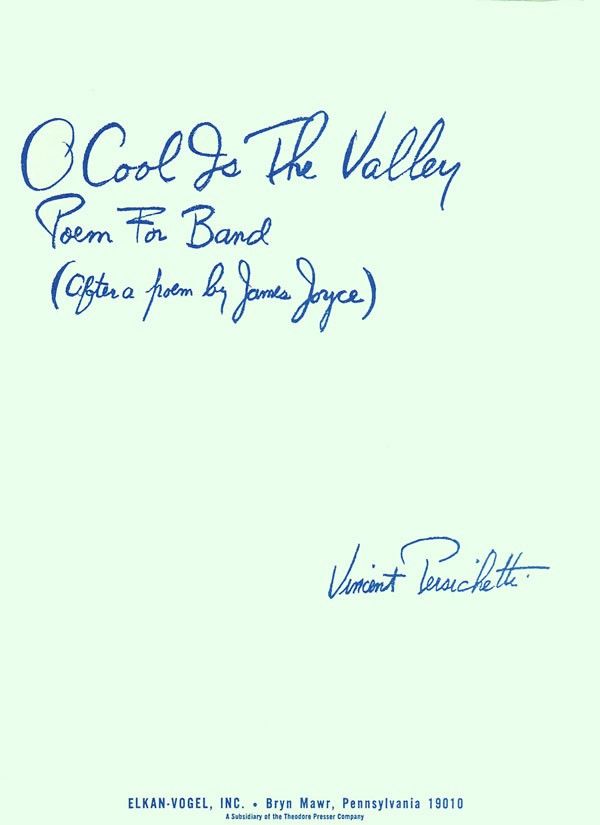 O Cool Is The Valley
Poem For Band
(after a poem by James Joyce)
Vincent Persichetti
ELKAN-VOGEL, INC. • Bryn Mawr, Pennsylvania 19010
A Subsidiary of the Theodore Presser Company